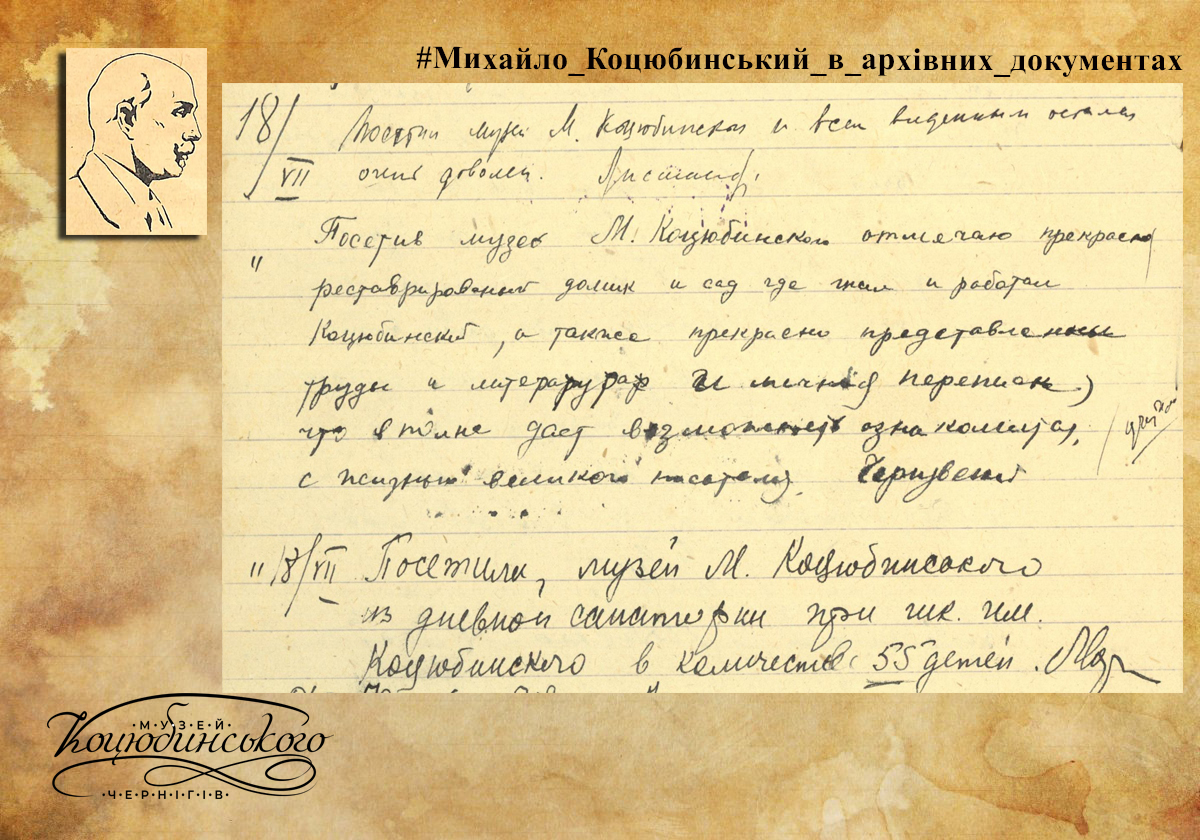 #Михайло_Коцюбинський_в_архівних_документах
18/ музей М. Коцюбинского и всем виденным остались
VII очень доволен.
Посетив музей М. Коцюбинского отмечаю прекрасно
" реставрированый домик и сад где жил и работал
Коцюбинский, а также прекрасно представлены
труды и и личная переписк
что вполне даст возможность ознакомится,
с жизнью великого писателя.
" 18/VII Посетили, музей М. Коцюбинського
из дневной санатории при шк. им.
Коцюбинского в количестве 55 детей.
МУЗЕЙ
Коцюбинського
ЧЕРНІГІВ